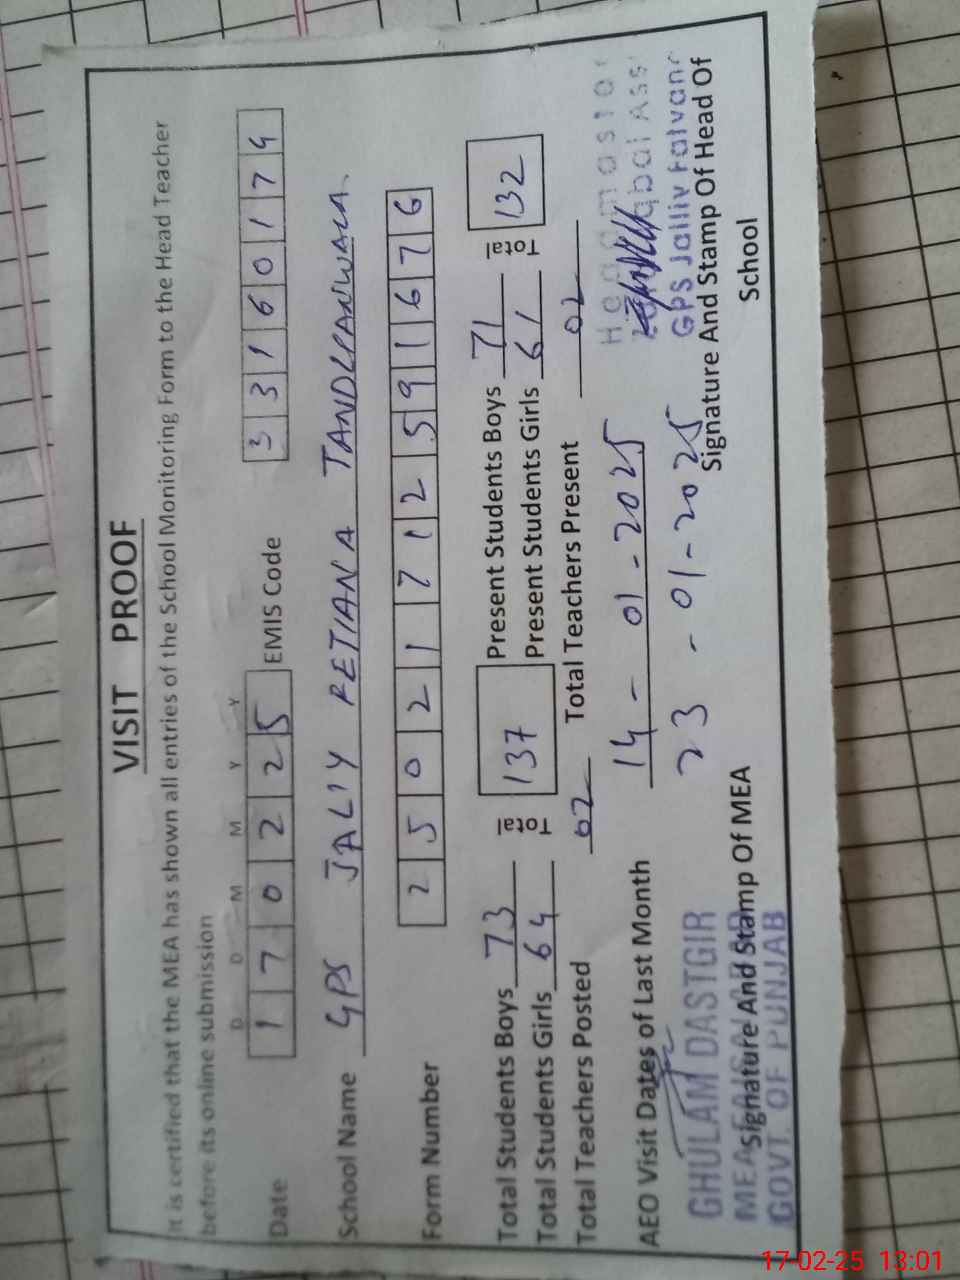 VISIT PROOF
It is certified that the MEA has shown all entries of the School Monitoring Form to the Head Teacher
before its online submission
D D M M Y Y
Date 1 7 0 2 2 5 EMIS Code 3 3 1 6 0 1 7 4
School Name GPS JALIY RETIANA TANDLPANWALA
Form Number 2 5 0 2 1 7 1 2 5 9 1 6 7 6
Total Students Boys 73 Total 137 Present Students Boys 71 Total 132
Total Students Girls 64 Present Students Girls 61
Total Teachers Posted 02 Total Teachers Present 02
AEO Visit Dates of Last Month 14 - 01 - 2025
23 - 01 - 2025
GHULAM DASTGIR
MEA
GOVT. OF PUNJAB
Signature And Stamp Of MEA
GPS Jalliv
Signature And Stamp Of Head Of
School
17-02-25 13:01